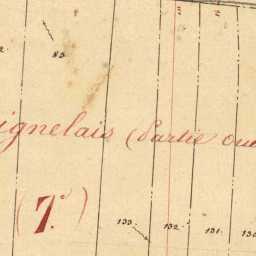 85
ignelais (Partie oue
(7.)
133. 132. 131. 130